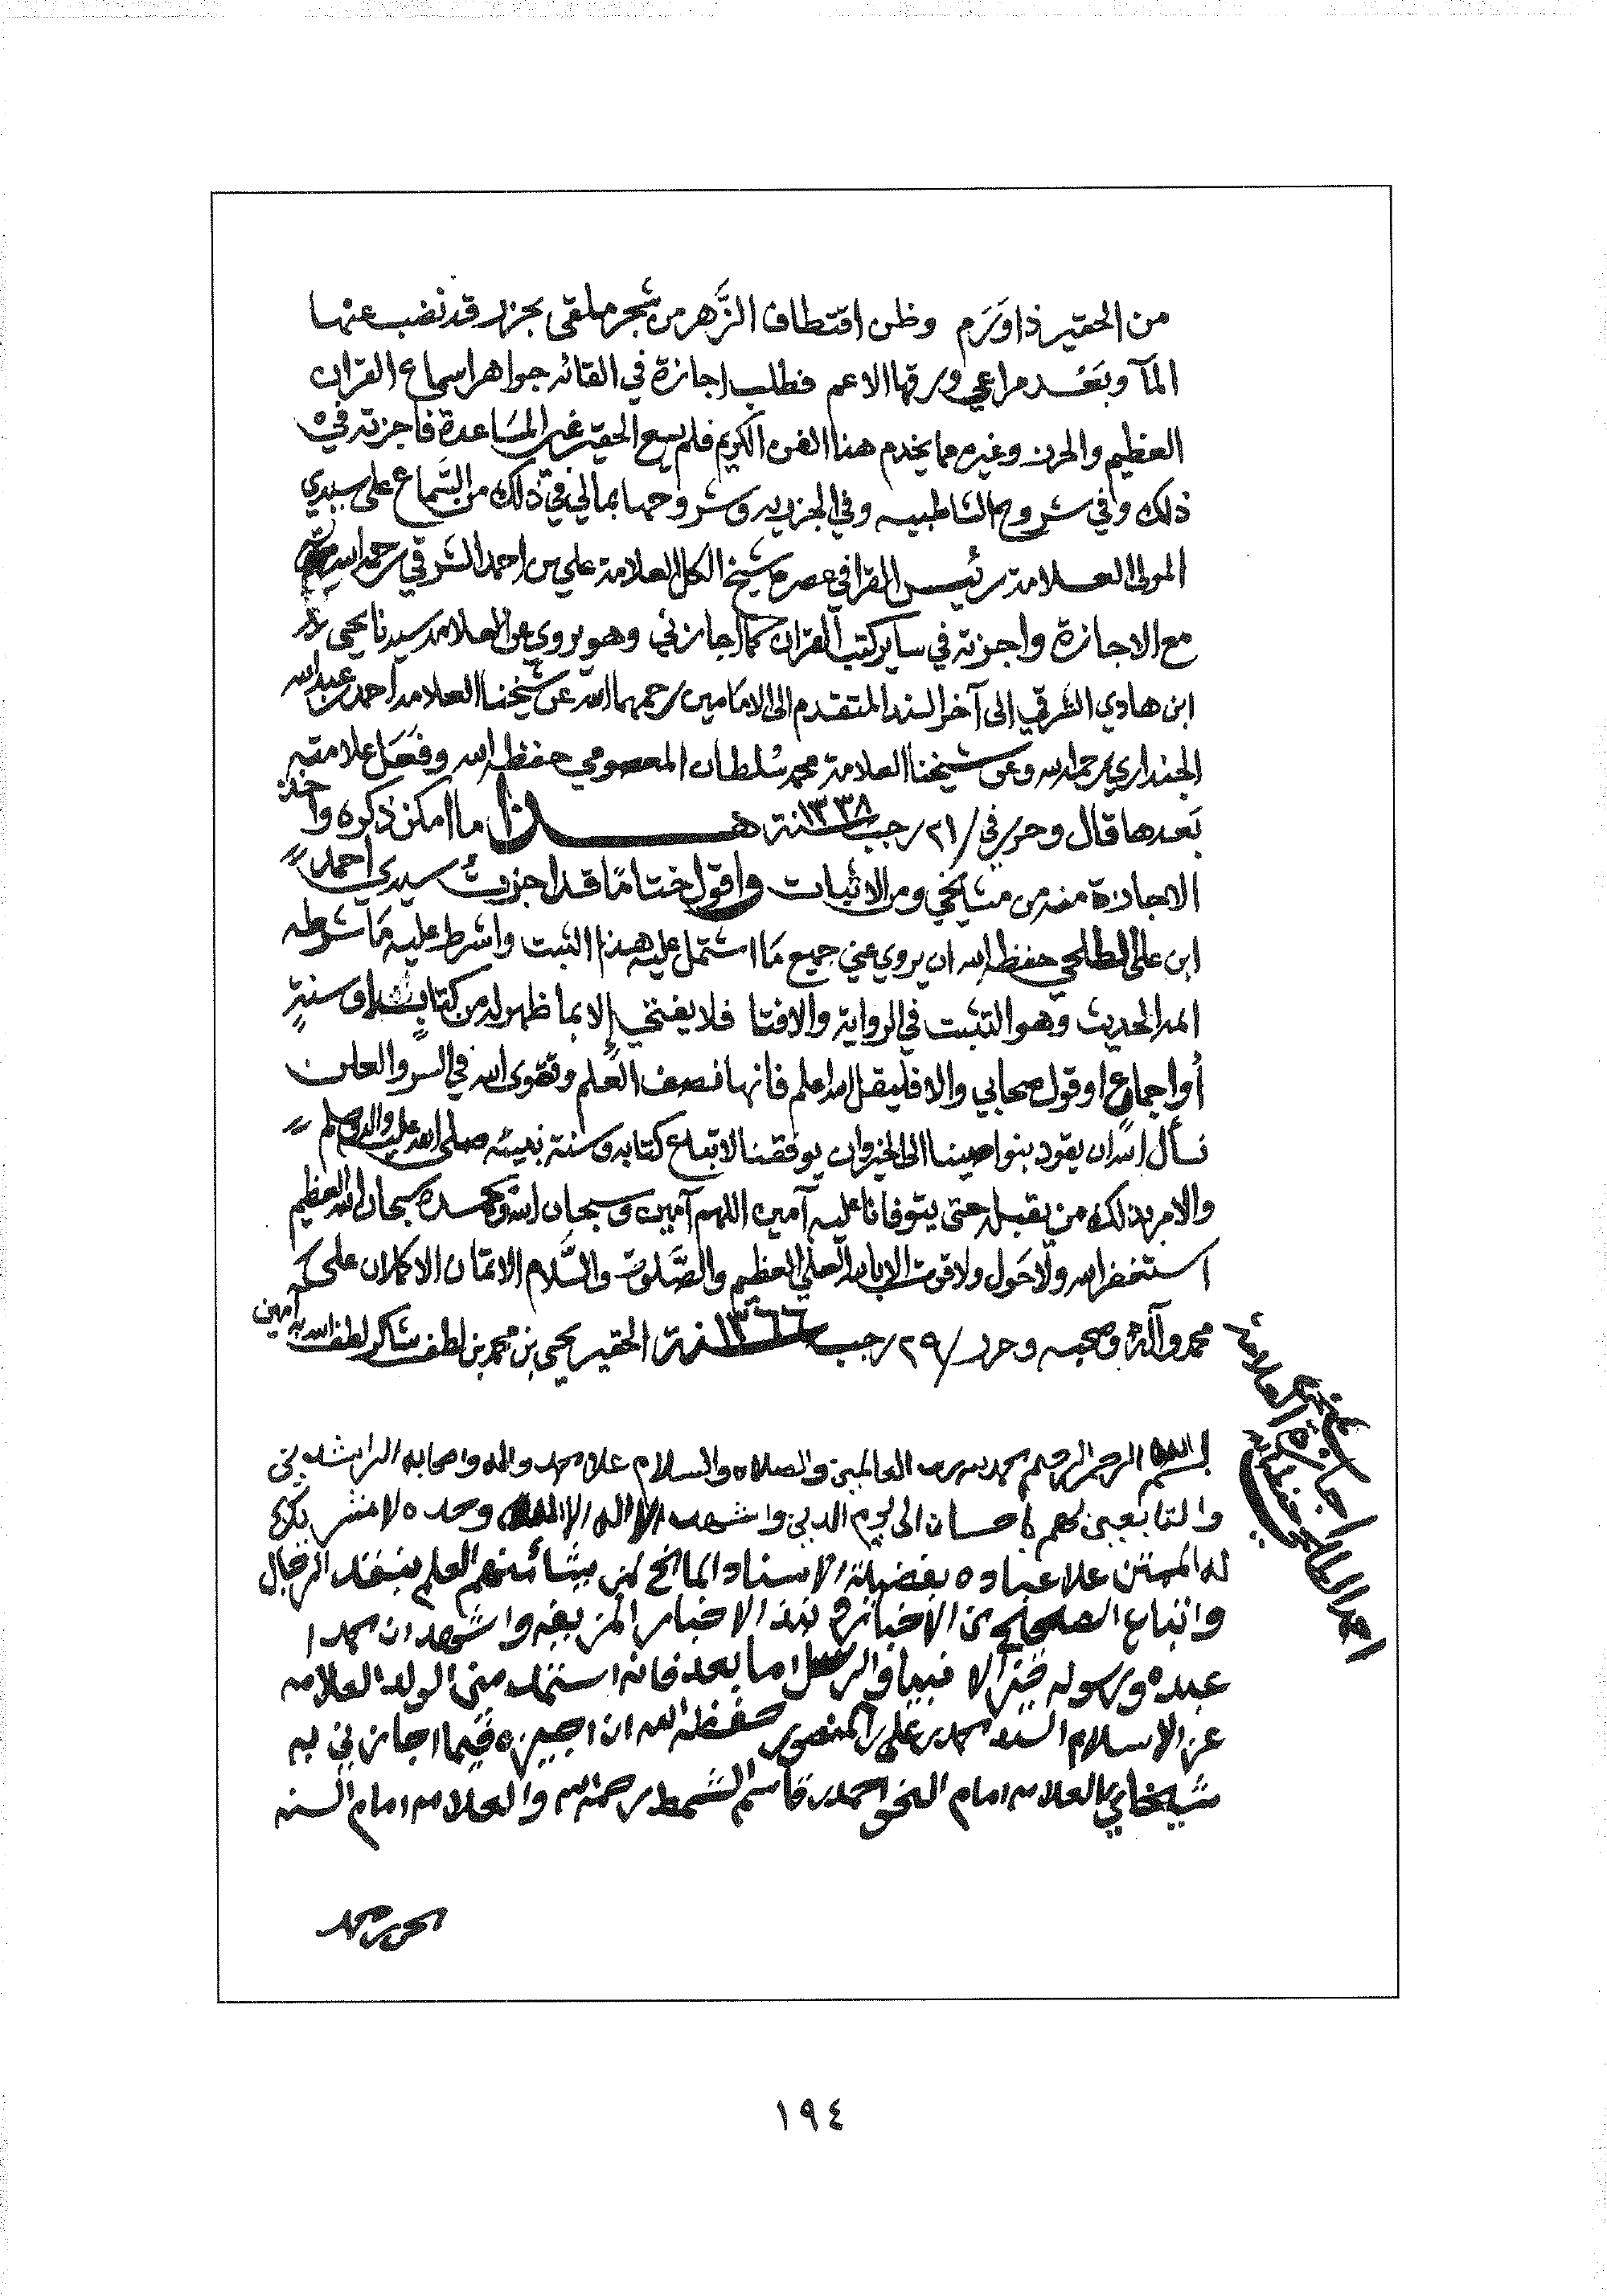 من الحقير ذا ورم وظن اقتطاف الزَّهر من شجر ملقى بجزر قد نضب عنها
المآ وبَعُد مراعي ورقها الاعم فطلب اجازة في القائه جواهر اسماع القران
العظيم والحرز وغيره مما يخدم هذا الفن الكريم فلم يسع الحقير غير المسَاعدة فاجزته في
ذلك وفي شروح الشاطبيه وفي الجزريه وشروحها بمالي في ذلك من السَّماع على سيدي
المولى العلامة رئيس القرا في عصره شيخ الكل العلامة علي بن احمد الشرقي رحمه الله
مع الاجازة واجزته في ساير كتب القران كما اجازني وهو يروي عن العلامه سيدنا يحيى
ابن هادي الشرقي الى آخر السند المتقدم الى الامامين رحمهما الله عن شيخنا العلامه احمد بن عبدالله
الجنداري رحمه الله وعن شيخنا العلامة محمد سُلطان المعصومي حفظه الله وفعَل علامته
بَعدها قال وحرر في /٢١ رجب سنة ١٣٣٨ هـذا ما امكن ذكره واخذ
الاجازة منه من مشايخي ومن الاثبات واقول ختامًا قد اجزت سيدي احمد
ابن علي الطلحي حفظه الله ان يروي عني جميع مَا اشتمل عليه هذا الثبت واشرط عليه مَا شرطه
اهل الحديث وهو التثبت في الرواية والافتا فلا يفتي إلا بما ظهر له من كتابٍ او سنةٍ
أو اجماعٍ او قول صحابي والا فليقل الله اعلم فانها نصف العلم وتقوى الله في السر والعلن
نسأل الله ان يقود بنواصينا الى الخير وان يوفقنا لاتباع كتابه وسنة نبيئه صلى الله عليه واله وسلم
والامر بذلك من يقبله حتى يتوفانا عليه آمين اللهم آمين وسبحان الله وبحمده سبحان الله العظيم
استغفر الله ولا حَول ولا قوت الا بالله العلي العظيم والصَّلوت والسَّلام الاتمان الاكملان على
محمد وآله وصحبه وحرر /٢٩ رجب سنة ١٣٦٦ الحقير يحيى بن محمد بن لطف شاكر لطف الله به آمين
اجازة شيخنا العلامة
بسم الله الرحمن الرحيم الحمد لله رب العالمين والصلاه والسلام علا محمد واله واصحابه الراشدين
والتابعين لهم باحسان الى يوم الدين واشهد ان لا اله الا الله وحده لا شريك
له الممتن علا عباده بفضيلة الاسناد المانح لمن يشاء منهم العلم بنقد الرجال
واتباع الصحيح من الاخبار ونبذ الاخبار المزيفه واشهد ان محمدا
عبده ورسوله خير الانبيا والرسل اما بعد فانه استمد مني الولد العلامه
عز الاسلام السيد محمد بن علي المنصور حفظه الله ان اجيزه فيما اجازني به
شيخاي العلامه امام النحو احمد بن قاسم الشمط رحمه الله والعلامه امام السنه
١٩٤